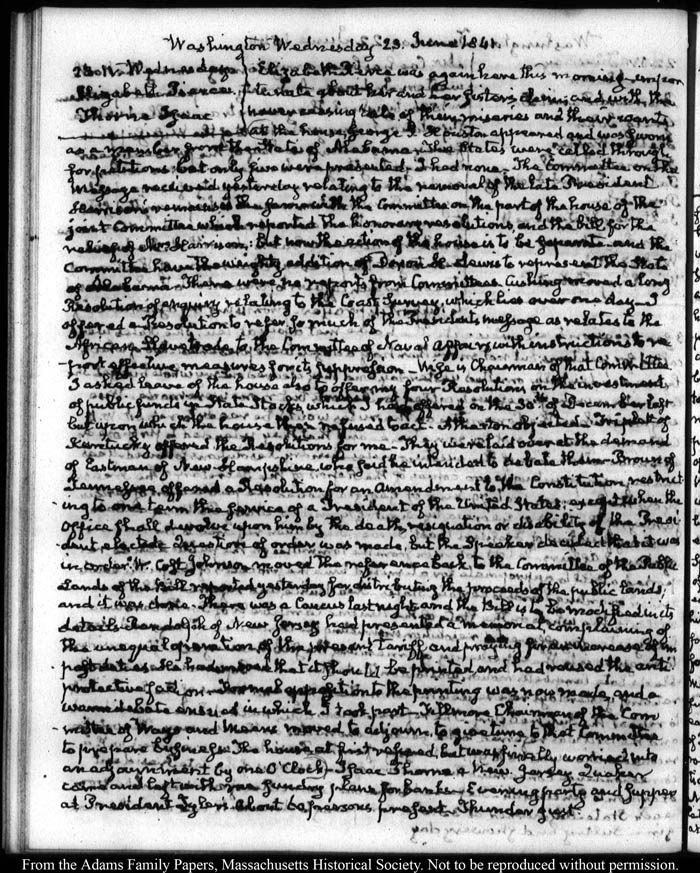 Washington Wednesday 23. June 1841.
23. IV. Wednesday Elizabeth Pierce was again here this morning
Elizabeth Pearce about her and her sisters claim and with the
Thorne Isaac never ceasing tale of their miseries and their wants
at the house, George S. Houston appeared and was sworn
as a member from the State of Alabama. The States were called through
for petitions but only five were presented, I had none. The Committee on the
message received yesterday relating to the removal of the late President
Harrison's remains is the same with the Committee on the part of the house of the
joint Committee which reported the honorary resolutions, and the bill for the
relief of Mrs. Harrison; but now the action of the house is to be separate and the
Committee have the weighty addition of Dixon H. Lewis to represent the State
of Alabama. There were no reports from Committees. Cushing moved a long
Resolution of enquiry relating to the Coast Survey, which lies over one day. I
offered a Resolution to refer so much of the President's message as relates to the
African Slave trade to the Committee of Naval Affairs with instructions to re-
port effective measures for its suppression. Wise is Chairman of that Committee
I asked leave of the house also to offer my four Resolutions on the investment
of public funds in State Stocks which I had offered on the 30th of December last
but upon which the house then refused to act. Atherton objected. Triplett of
Kentucky offered the Resolutions for me. They were laid over at the demand
of Eastman of New Hampshire, who said he intended to debate them. Brown of
Tennessee offered a Resolution for an Amendment to the Constitution, restrict-
ing to one term the service of a President of the United States; except when the
Office shall devolve upon him by the death, resignation or disability of the Presi-
dent elected. Question of order was made, but the Speaker decided that it was
in order. W. Cost Johnson moved the reference back to the Committee of the Public
Lands of the Bill reported yesterday for distributing the proceeds of the public lands,
and it was done. There was a Caucus last night and the Bill is to be modified in its
details. Randolph of New Jersey had presented a memorial complaining of
the unequal operation of the present tariff and praying for an increase of im-
post duties. He had moved that it should be printed and had roused the anti
protective party. Formal opposition to the printing was now made, and a
warm debate ensued in which I took part. Fillmore Chairman of the Com-
mittee of Ways and Means moved to adjourn, to give time to that Committee
to prepare business. The house at first refused, but was finally worried into
an adjournment by one O'Clock. Isaac Thorne a New Jersey Quaker
came and left with me sundry plans for banks. Evening party and supper
at President Tyler's. About 60 persons present. Thunder gust.
From the Adams Family Papers, Massachusetts Historical Society. Not to be reproduced without permission.